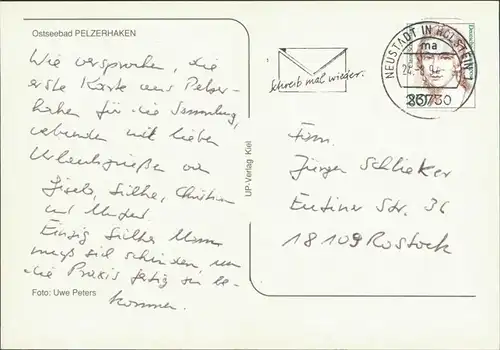 Ostseebad PELZERHAKEN
Wie versprochen, die
erste Karte aus Pelzer-
haken für die Sammlung,
verbunden mit lieben
Urlaubsgrüßen von
Gisela, Silke, Christian
und
Einzig Silkes Mann
muß sich schinden, um
die Praxis fertig zu be-
kommen.
Foto: Uwe Peters
UP-Verlag Kiel
Schreib mal wieder.
NEUSTADT IN HOLSTEIN
ma
23730
Fam.
Jürgen Schlieker
Eutiner Str. 36
18109 Rostock